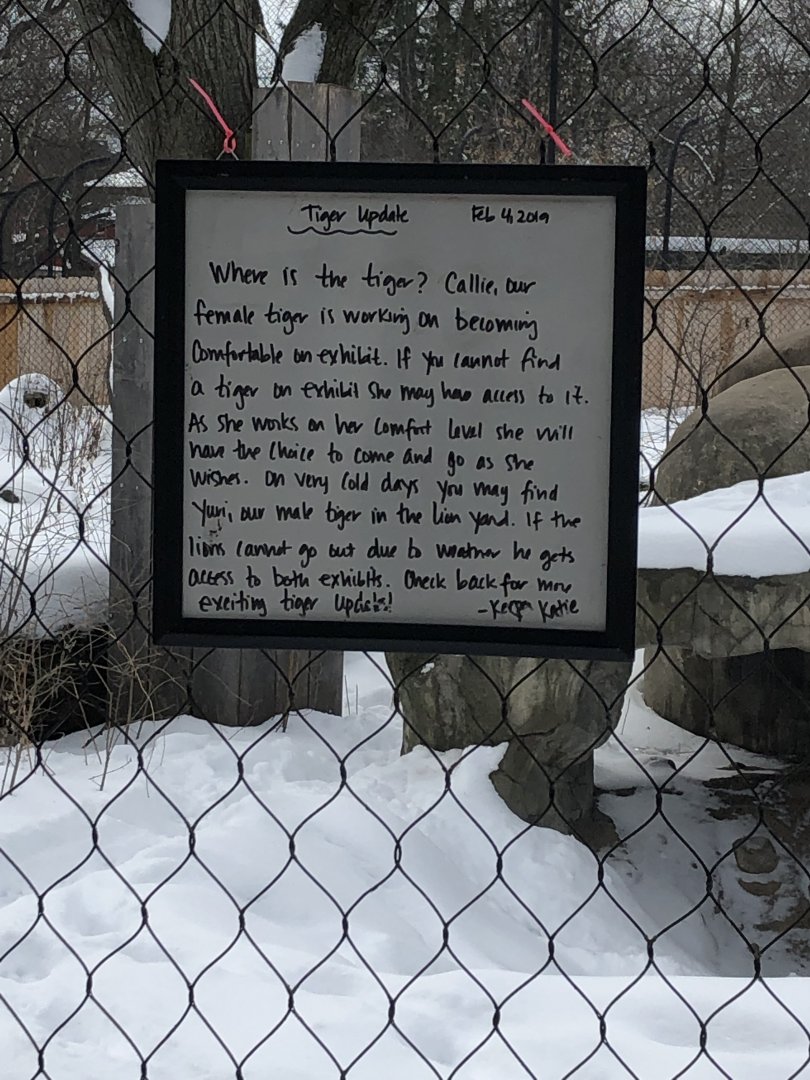 Tiger Update Feb 4, 2019
Where is the tiger? Callie, our
female tiger is working on becoming
Comfortable on exhibit. If you cannot find
a tiger on exhibit she may have access to it.
As she works on her comfort level she will
have the choice to come and go as she
wishes. On very cold days you may find
Yuri, our male tiger in the lion yard. If the
lions cannot go out due to weather he gets
access to both exhibits. Check back for more
exciting tiger updates!
-Keeper Katie